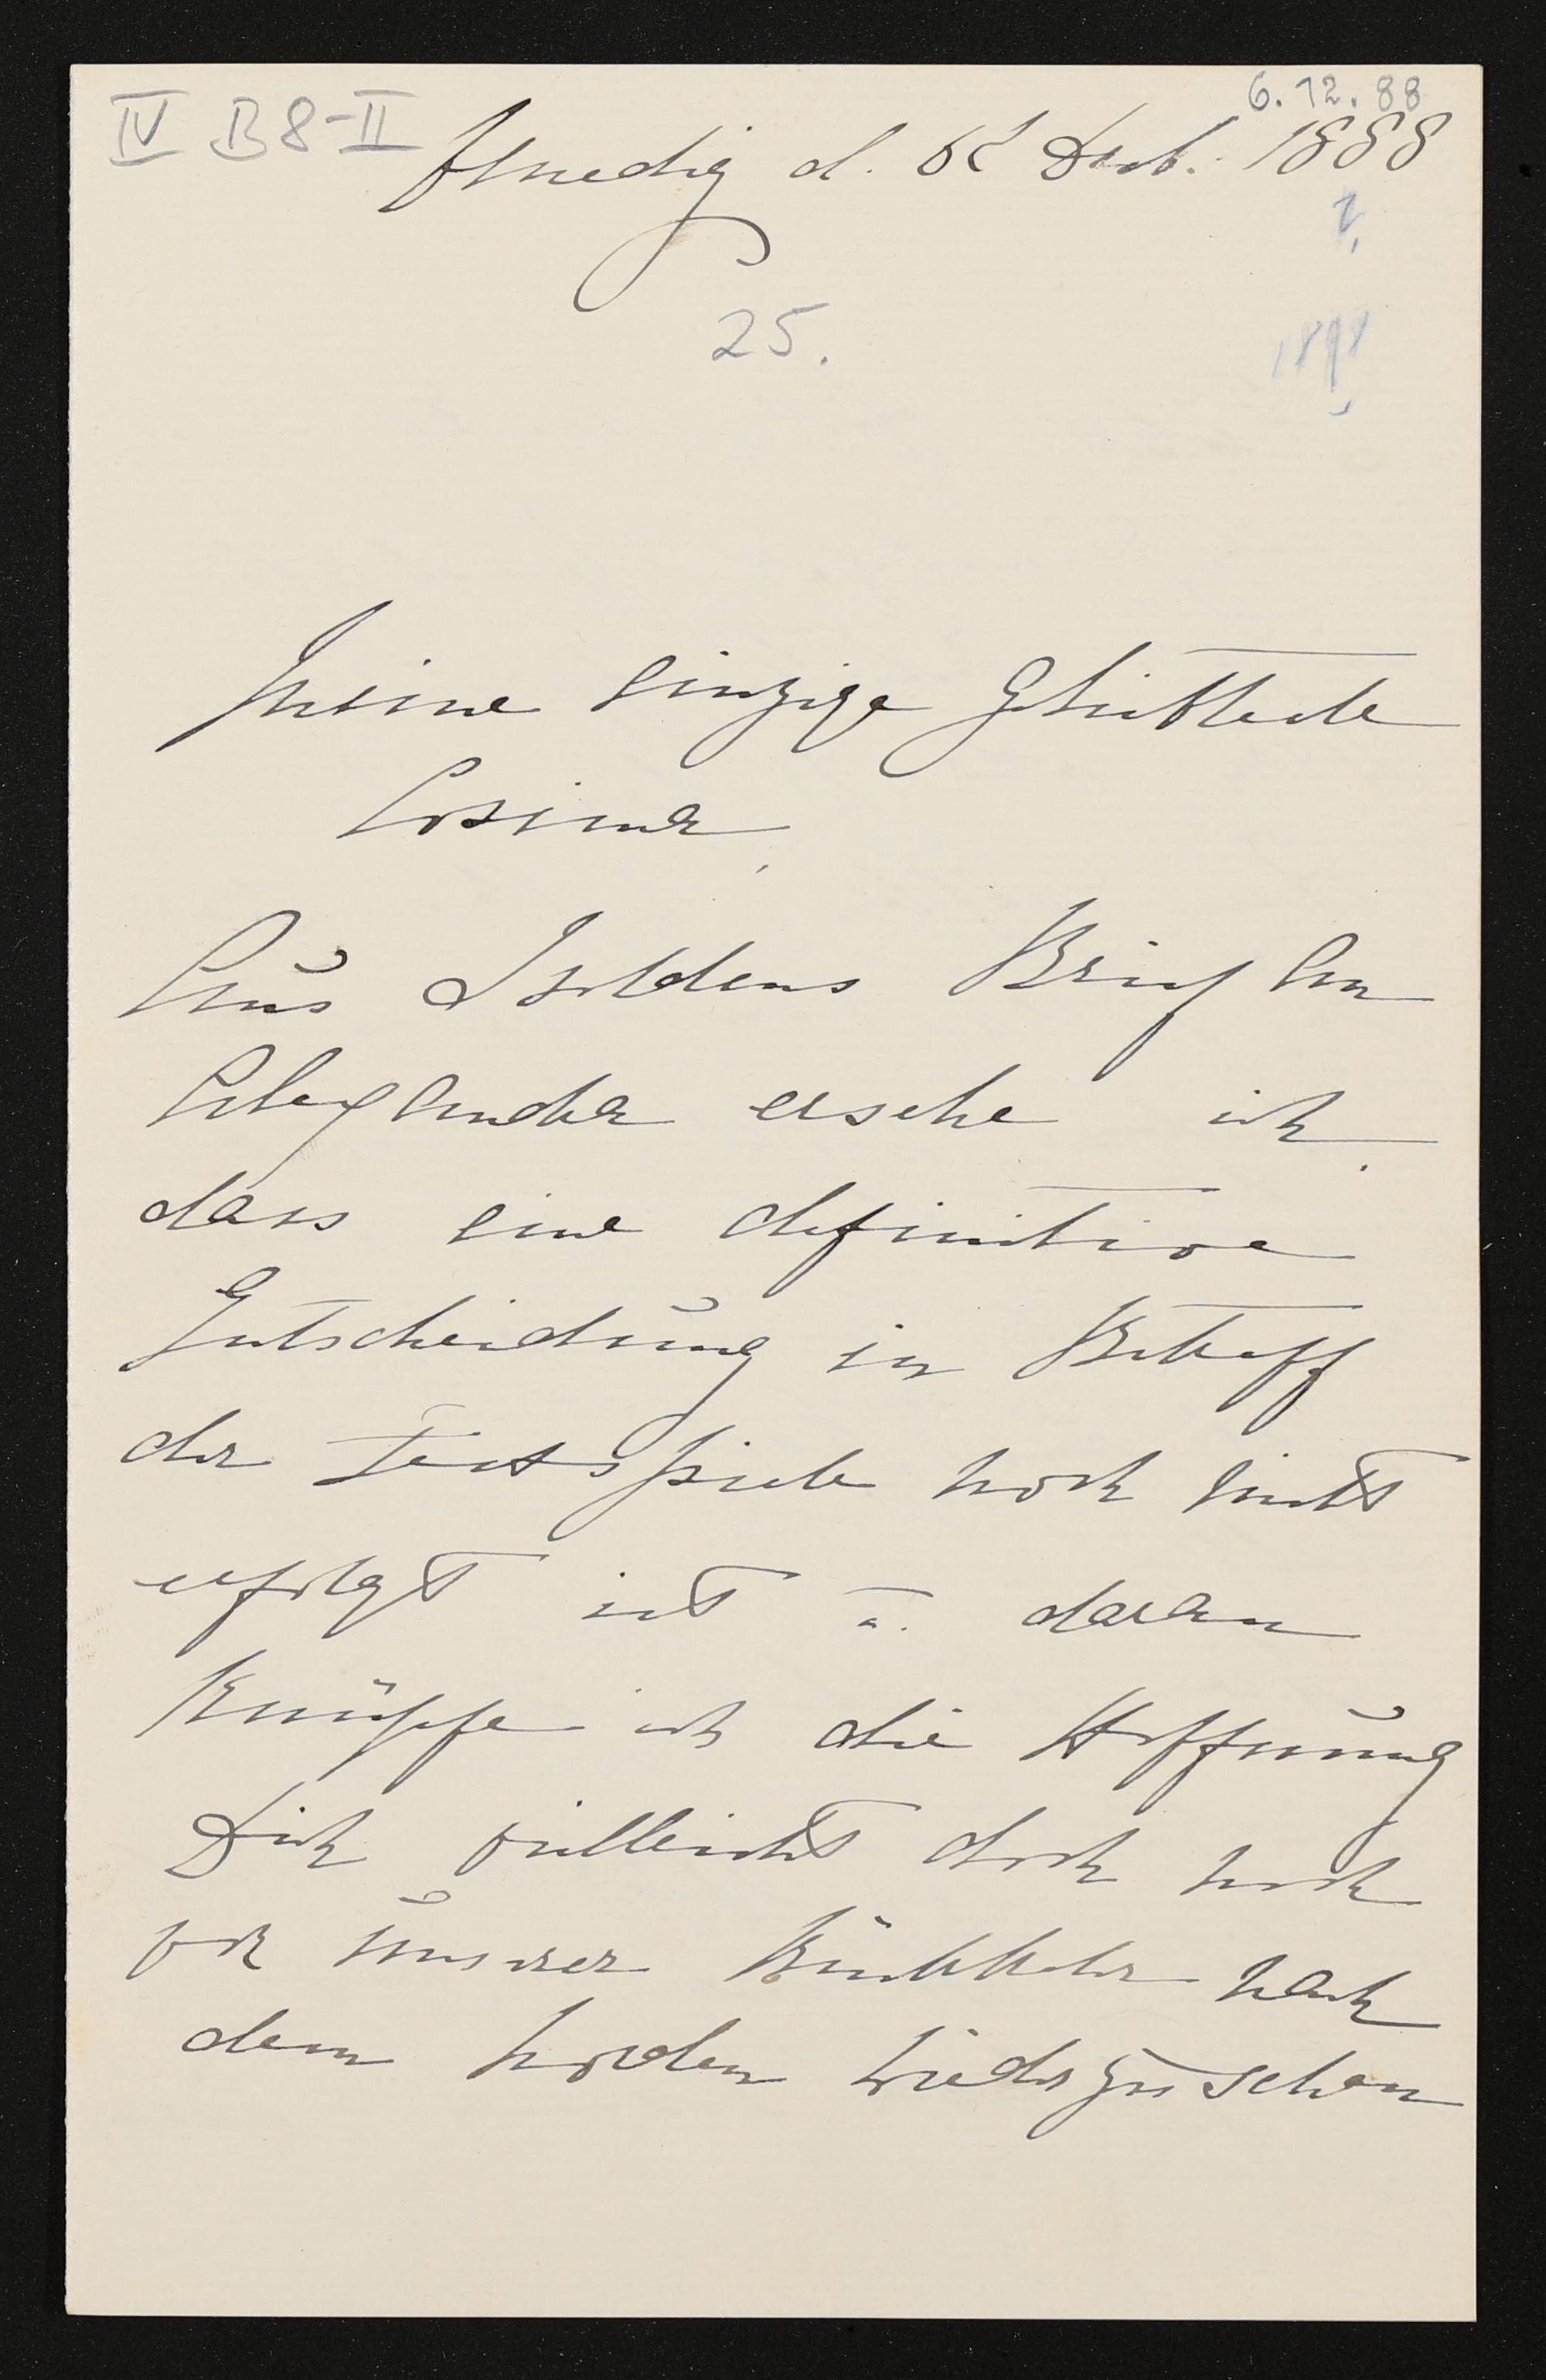 6. 12. 88
IV B 8-II Venedig d. 6t Decb. 1888
?
25.
1898
Meine einzige geliebteste
Cosima,
Aus Isoldens Brief an
Alexander ersehe ich
dass eine definitive
Entscheidung in Betreff
der Festspiele noch nicht
erfolgt ist u. daran
knüpfe ich die Hoffnung
Dich vielleicht doch noch
vor unserer Rückkehr nach
dem Norden wiederzusehen